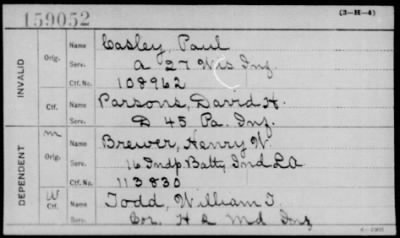 159052
(3-H-4)
INVALID
Orig.
Name Casley, Paul
Serv. A 27 Wis Inf
Ctf. No. 108962
Ctf.
Name Parsons, David H.
Serv. D 45 Pa. Inf.
DEPENDENT
m
Orig.
Name Brewer, Henry W.
Serv. 16 Indp Batty Ind L A
Ctf. No. 113830
W
Ctf.
Name Todd, William T.
Serv. Cor. H 2 Md Inf